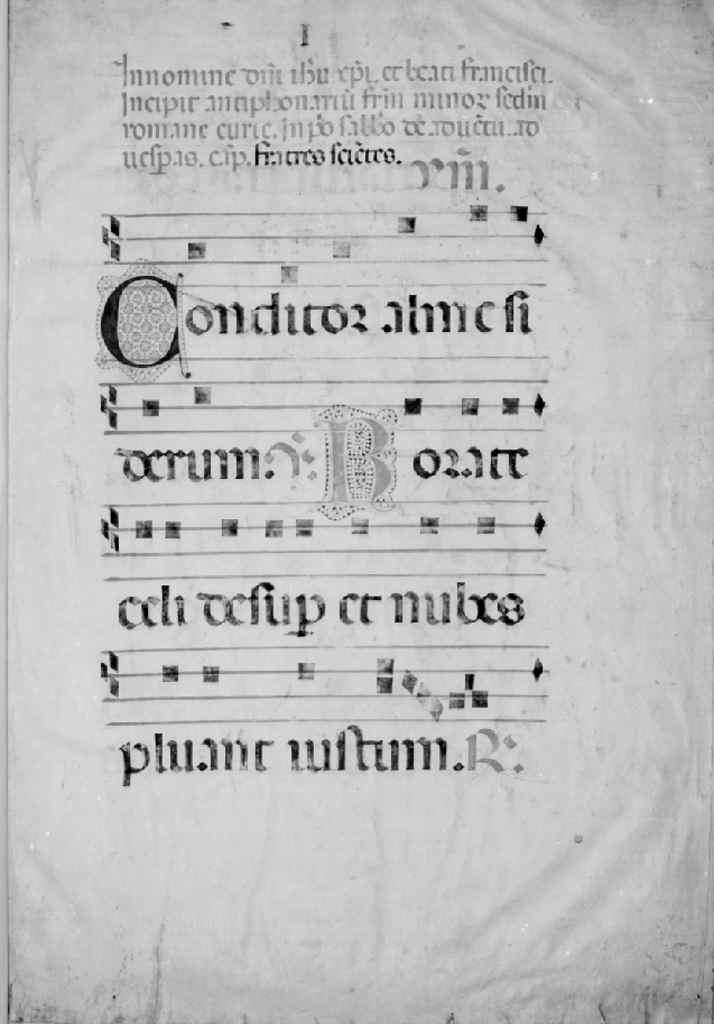 I
In nomine dñi ihũ xp̃i. et beati francisci.
Incipit antiphonariũ frm̃ minoꝝ sedm̃
romane curie. In po sabbo de aduẽtu. ad
uesp̃as. cap̃. fratres sciẽtes.
ym̃.
Conditor alme si
derum. V. Rorate
celi desup et nubes
pluant iustum. R.